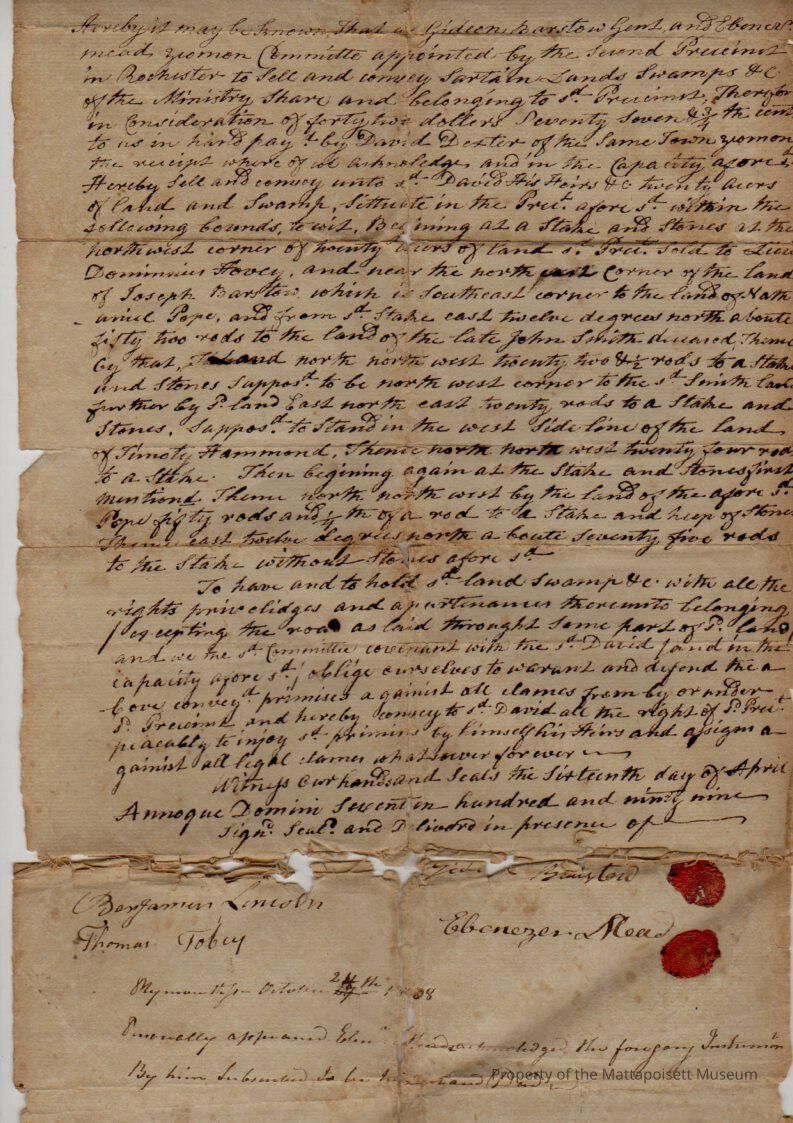 Hereby it may be known that we Gideon Barstow Gent, and Ebenezr.
mead yomon Committe appointed by the Second Precinct
in Rochester to Sell and convey Sartain Lands Swamps &C
of the Ministry Share and belonging to sd. Precinct, Therefor
in Consideration of forty two dollers Seventy Seven & 3/4 th cent
to us in hand pay.d by David Dexter of the Same Town yomon
the receipt where of we acknoledge and in the Capacity afore sd.
Hereby Sell and convey unto sd. David His Heirs &C twenty acers
of land and Swamp, Sittuate in the Prect. afore sd. within the
following bounds, to wit, Begining at a Stake and Stones at the
northwest corner of twenty acers of land sd. Prect. Sold to Lieu
Dominicus Hovey, and near the north east Corner of the land
of Joseph Barstow which is Southeast corner to the land of Nath
aniel Pope, and from sd. Stake east twelve degrees north aboute
fifty two rods to the land of the late John Smith deceased, Thence
by that, Land north north west twenty two & 1/2 rods to a Stake
and Stones Suppos.d to be north west corner to the sd. Smith land
further by sd. land East north east twenty rods to a Stake and
Stones, Suppos.d to Stand in the west Side line of the land
of Timoty Hammond, Thence north north west twenty four rods
to a Stake. Then begining again at the Stake and Stones first
mentiond Thence north north west by the land of the afore sd.
Pope fifty rods and 1/4 th of a rod to a Stake and heep of Stones
Thence east twelve degrees north a boute Seventy five rods
to the Stake without Stones afore sd.
To have and to hold sd. land Swamp &C. with all the
rights privelidges and apurtinances thereunto belonging
(excepting the road as laid throught Some part of sd. land)
and we the sd. Committe covenant with the sd. David (and in the
capacity afore sd.) oblige ourselves to warant and defend the a
bove convey.d primises against all clames from by or under
sd. Precinct and hereby convey to sd. David all the right of sd. Prect.
peacably to injoy sd. primises by himself his Heirs and assigns a
gainst all legal clames whatsoever forever
Witness our hands and Seals the Sixteenth day of April
Annoque Domini Seventeen hundred and ninty nine
Sign.d Seal.d and Deliverd in presence of
Gideon Barstow
Benjamin Lincoln
Ebenezer Mead
Thomas Tobey
Plymouth Ss October 24th 1808
Personally appeared Ebenr. Mead acknowledged the foregoing Instrument
By him Subscribed to be his
Property of the Mattapoisett Museum